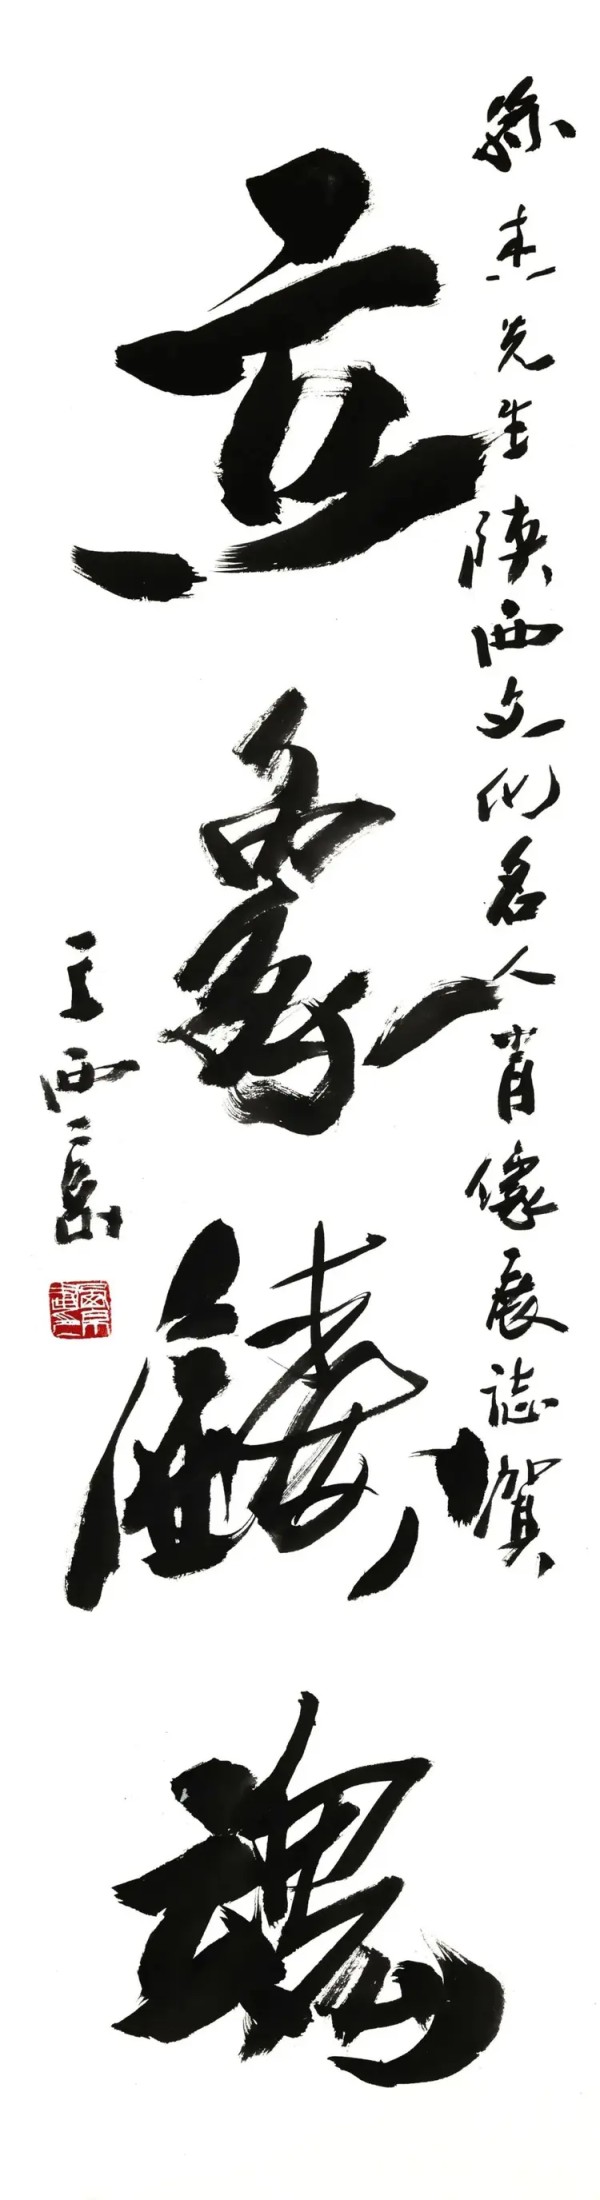 孫杰先生陝西文化名人肖像展誌賀
立象鏤魂
王西京